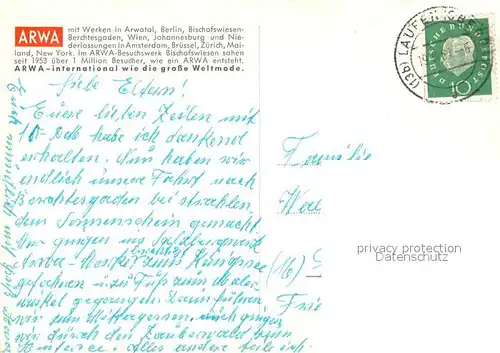 ARWA mit Werken in Arwatal, Berlin, Bischofswiesen-
Berchtesgaden, Wien, Johannesburg und Nie-
derlassungen in Amsterdam, Brüssel, Zürich, Mai-
land, New York. Im ARWA-Besuchswerk Bischofswiesen sahen
seit 1953 über 1 Million Besucher, wie ein ARWA entsteht.
ARWA-international wie die große Weltmode.
Liebe Eltern!
Eure lieben Zeilen mit
10- habe ich dankend
erhalten. Nun haben wir
endlich unsere Fahrt nach
Berchtesgaden bei strahlen
dem Sonnenschein gemacht.
Wir gingen ins Salzbergwerk
Arwa- zum Königssee
gefahren u. zu Fuß zum Maler
winkel gegangen. Dann fuhren
wir zum Mittagessen, auch gingen
wir durch den Zauberwald zum
Hintersee. Alles andere teile ich
Familie
(16)
(13b) LAUFEN
DEUTSCHE BUNDESPOST
10
privacy protection